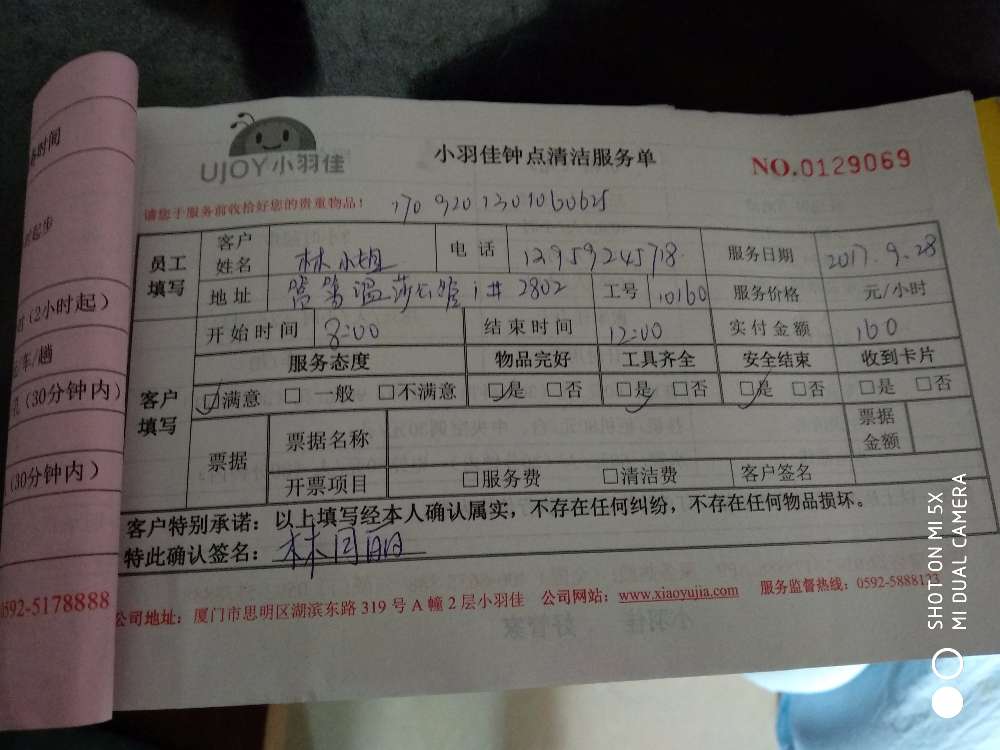 务时间
时起步
时（2小时起）
车/趟
（30分钟内）
（30分钟内）
0592-5178888
UJOY小羽佳
小羽佳钟点清洁服务单
NO.0129069
请您于服务前收拾好您的贵重物品！
员工填写 客户姓名 林小姐 电话 12959245718 服务日期 2017.9.28
地址 2802 工号 10160 服务价格 元/小时
客户填写 开始时间 8:00 结束时间 12:00 实付金额 160
服务态度 物品完好 工具齐全 安全结束 收到卡片
☑满意 □一般 □不满意 ☑是 □否 ☑是 □否 ☑是 □否 □是 □否
票据 票据名称 票据金额
开票项目 □服务费 □清洁费 客户签名
客户特别承诺：以上填写经本人确认属实，不存在任何纠纷，不存在任何物品损坏。
特此确认签名：
公司地址：厦门市思明区湖滨东路 319 号 A 幢 2 层小羽佳 公司网站：www.xiaoyujia.com 服务监督热线：0592-5888123
SHOT ON MI 5X
MI DUAL CAMERA